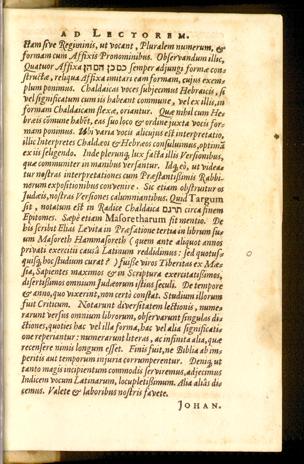 AD LECTOREM.
etiam sive Regiminis, ut vocant, Pluralem numerum, &
formam cum Affixis Pronominibus. Observandum illic,
Quatuor Affixa כם כן הם הן semper adjungi formæ con-
structæ, reliqua Affixa imitari eam formam, cujus exem-
plum ponimus. Chaldaicas voces subjecimus Hebraicis, si
vel significatum cum iis habeant commune, vel ex illis, in
formam Chaldaicam flexæ, oriantur. Quæ nihil cum He-
brais cōmune habēt, eas suo loco & ordine juxta vocis for-
mam ponimus. Ubi varia vocis alicujus est interpretatio,
illic Interpretes Chaldæos & Hebræos consulimus, optimā
ex iis seligendo. Inde plerunq; lux facta illis Versionibus,
quæ communiter in manibus versantur. Idq; eò, ut videā-
tur nostras interpretationes cum Præstantissimis Rabbi-
norum expositionibus convenire. Sic etiam obstruitur os
Judæis, nostras Versiones calumniantibus. Quid Targum
sit, notatum est in Radice Chaldaica תרגם circa finem
Epitomes. Sæpè etiam Masoretharum fit mentio. De
his scribit Elias Levita in Præfatione tertia in librum su-
um Masoreth Hammasoreth (quem ante aliquot annos
privati exercitii causâ Latinum reddidimus: sed quotus-
quisq; hoc studium curat?) fuisse viros Tiberitas ex
sia, Sapientes maximos & in Scriptura exercitatissimos,
disertissimos omnium Judæorum istius seculi. De tempore
& anno, quo vixerint, non certò constat. Studium illorum
fuit Criticum. Notarunt diversitatem lectionis, nume-
rarunt versus omnium librorum, observarunt singulas di-
ctiones, quoties hac vel illa forma, hac vel alia significati-
one reperiantur: numerarunt literas, ac infinita alia, quæ
recensere nimis longum esset. Finis fuit, ne Biblia ab im-
peritis aut temporum injuria corrumperentur. Deniq; ut
tanto magis incipientum commodis serviremus, adjecimus
Indicem vocum Latinarum, locupletissimum. Alia aliàs di-
cemus. Valete & laboribus nostris favete.
JOHAN.